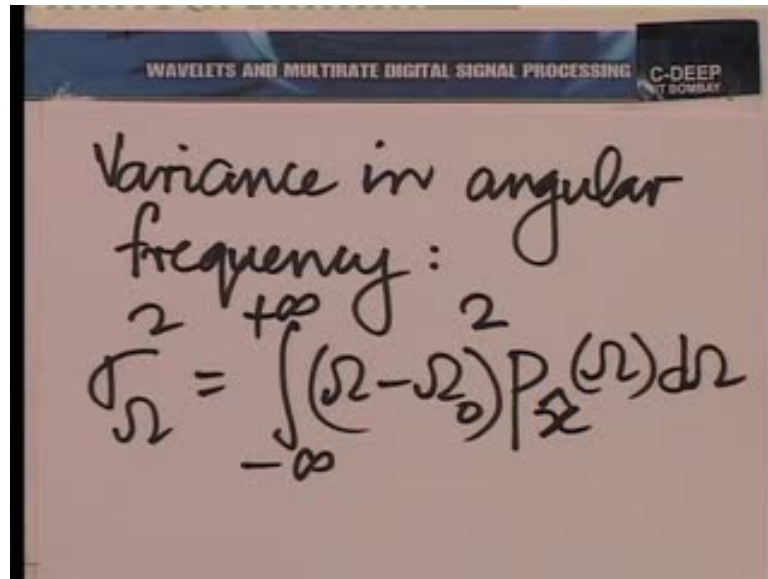 WAVELETS AND MULTIRATE DIGITAL SIGNAL PROCESSING
C-DEEP
IIT BOMBAY
Variance in angular
frequency :
σ_Ω^2 = ∫_{-∞}^{+∞} (Ω-Ω_0)^2 p_{x̂}(Ω)dΩ